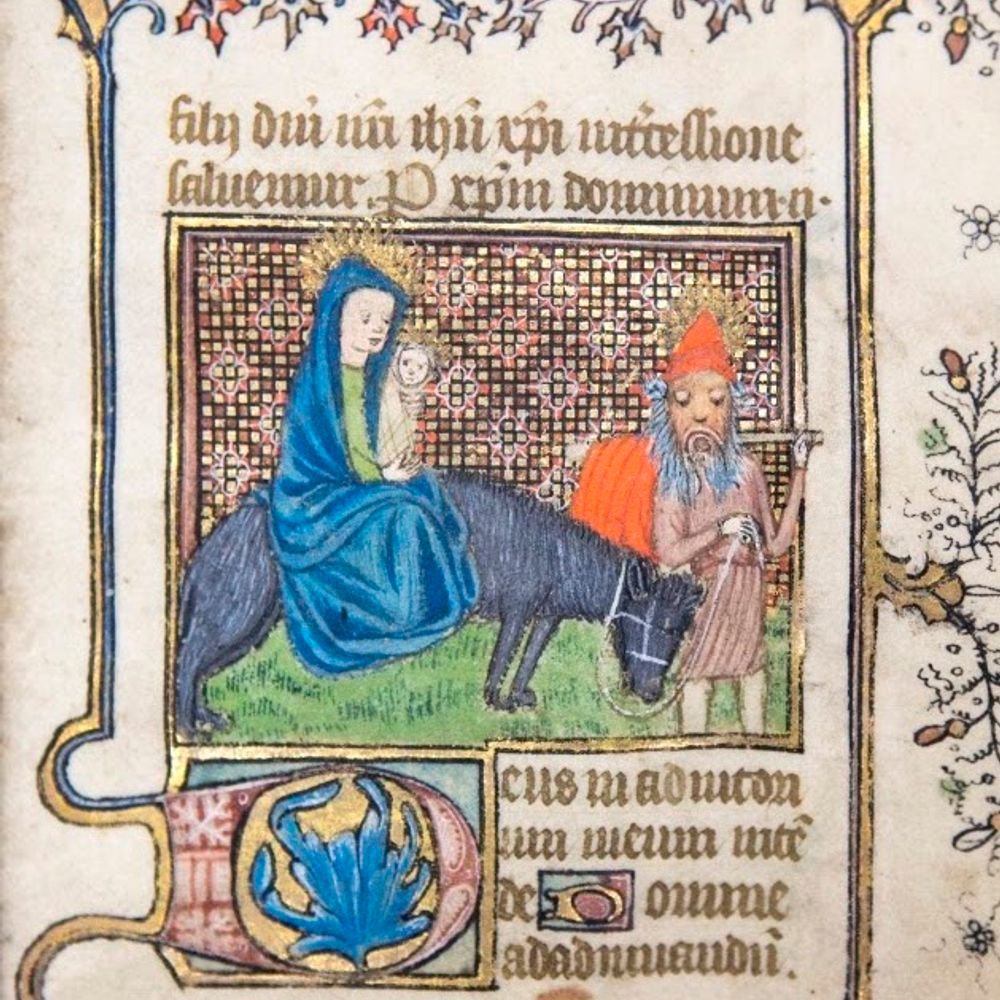 filij dñi nr̃i ihũ xp̃i intẽcessione
saluemur. P xp̃m dominum. a.
Deus in adiutori
um meum intẽ
de Domine
ad adiuuandũ.